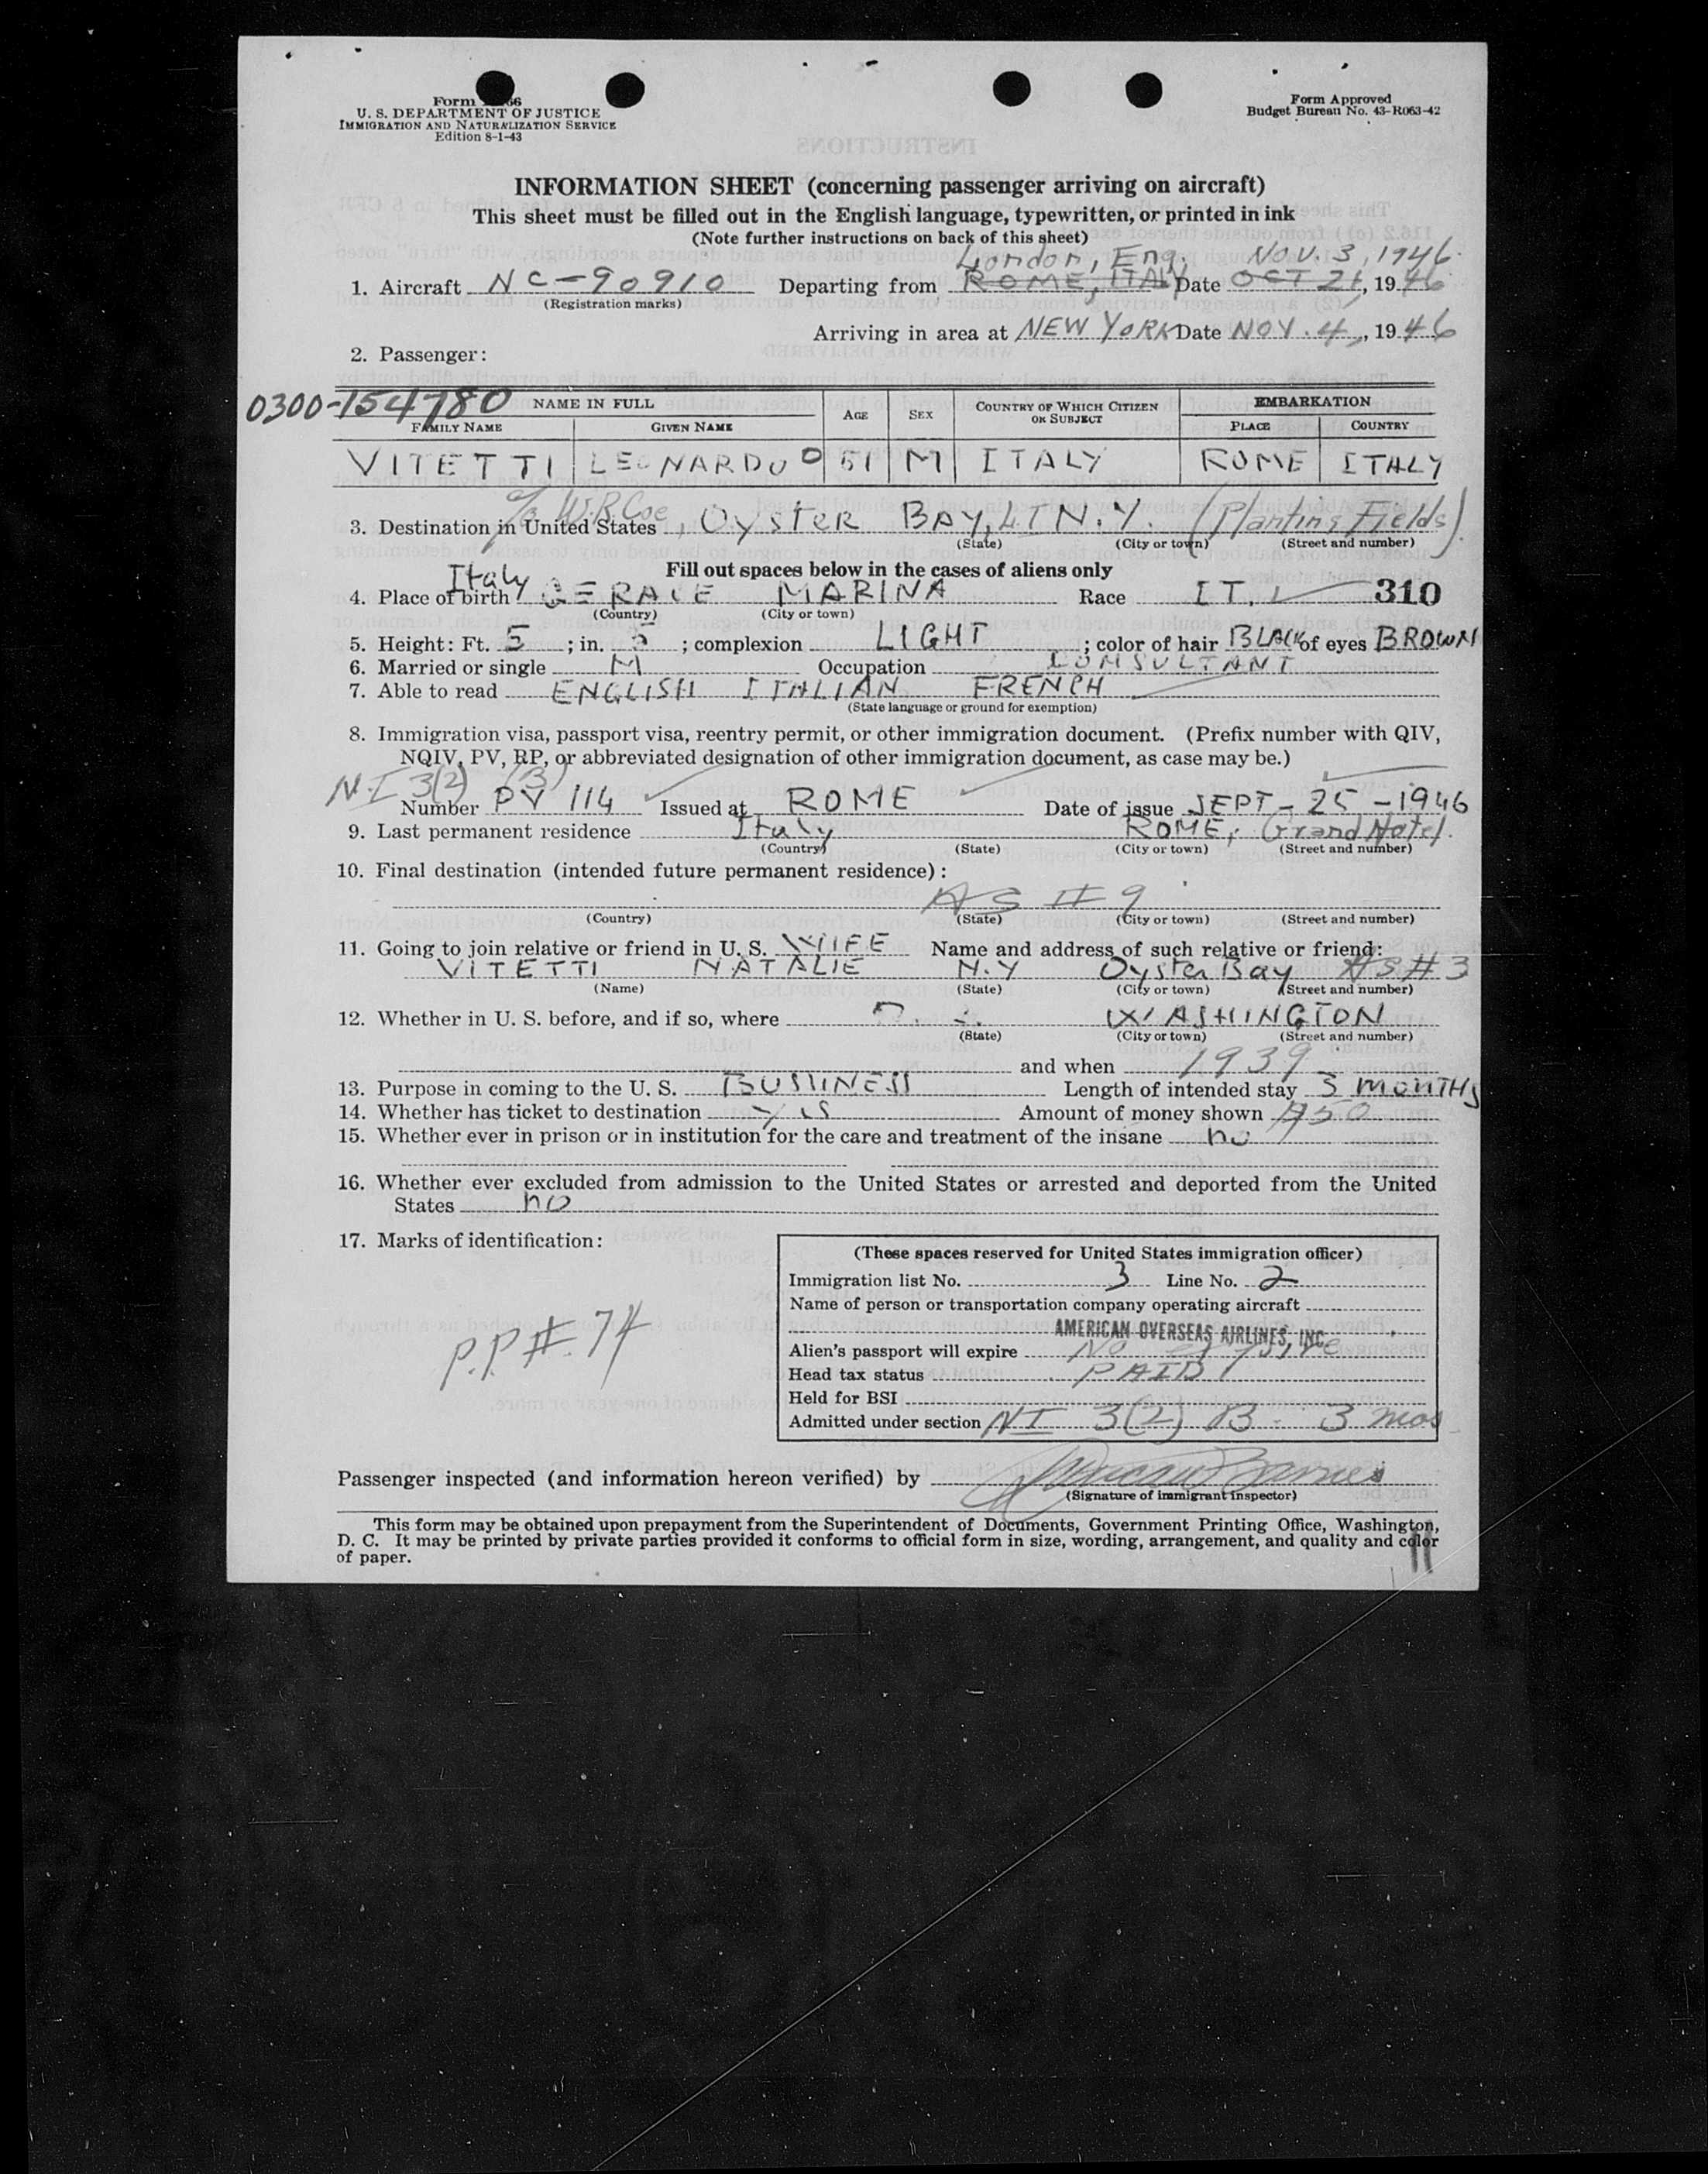 Form 66
U. S. DEPARTMENT OF JUSTICE
IMMIGRATION AND NATURALIZATION SERVICE
Edition 8-1-43
Form Approved
Budget Bureau No. 43-R063-42
INFORMATION SHEET (concerning passenger arriving on aircraft)
This sheet must be filled out in the English language, typewritten, or printed in ink
(Note further instructions on back of this sheet)
London, Eng. NOV. 3, 1946
1. Aircraft NC-90910 Departing from ROME, ITALY Date OCT 21, 1946
(Registration marks)
Arriving in area at NEW YORK Date NOV. 4, 1946
2. Passenger:
0300-154780 NAME IN FULL AGE SEX COUNTRY OF WHICH CITIZEN OR SUBJECT EMBARKATION
FAMILY NAME GIVEN NAME PLACE COUNTRY
VITETTI LEONARDO 51 M ITALY ROME ITALY
c/o W.R. Coe
3. Destination in United States , OYSTER BAY, L I N.Y. (Planting Fields)
(State) (City or town) (Street and number)
Fill out spaces below in the cases of aliens only
4. Place of birth Italy GERACE MARINA Race IT. 310
(Country) (City or town)
5. Height: Ft. 5; in. 5; complexion LIGHT; color of hair BLACK of eyes BROWN
6. Married or single M Occupation CONSULTANT
7. Able to read ENGLISH ITALIAN FRENCH
(State language or ground for exemption)
8. Immigration visa, passport visa, reentry permit, or other immigration document. (Prefix number with QIV,
NQIV, PV, RP, or abbreviated designation of other immigration document, as case may be.)
N.I 3(2) (3)
Number PV 114 Issued at ROME Date of issue SEPT - 25 - 1946
9. Last permanent residence Italy ROME, Grand Hotel.
(Country) (State) (City or town) (Street and number)
10. Final destination (intended future permanent residence):
AS # 9
(Country) (State) (City or town) (Street and number)
11. Going to join relative or friend in U. S. WIFE Name and address of such relative or friend:
VITETTI NATALIE N.Y Oyster Bay AS # 3
(Name) (State) (City or town) (Street and number)
12. Whether in U. S. before, and if so, where WASHINGTON
(State) (City or town) (Street and number)
and when 1939
13. Purpose in coming to the U. S. BUSINESS Length of intended stay 3 MONTHS
14. Whether has ticket to destination yes Amount of money shown $50
15. Whether ever in prison or in institution for the care and treatment of the insane no
16. Whether ever excluded from admission to the United States or arrested and deported from the United
States no
17. Marks of identification:
P.P.#.74
(These spaces reserved for United States immigration officer)
Immigration list No. 3 Line No. 2
Name of person or transportation company operating aircraft
AMERICAN OVERSEAS AIRLINES, INC.
Alien's passport will expire No expire
Head tax status PAID
Held for BSI
Admitted under section NI 3(2) B. 3 mos
Passenger inspected (and information hereon verified) by
(Signature of immigrant inspector)
This form may be obtained upon prepayment from the Superintendent of Documents, Government Printing Office, Washington,
D. C. It may be printed by private parties provided it conforms to official form in size, wording, arrangement, and quality and color
of paper.
11